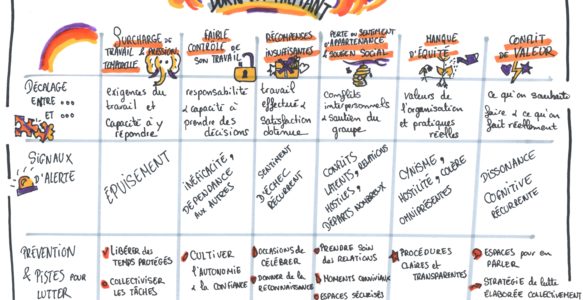 SURCHARGE DE
TRAVAIL & PRESSION
TEMPORELLE
FAIBLE
CONTRÔLE
DE
SON TRAVAIL
RÉCOMPENSES
INSUFFISANTES
PERTE DU SENTIMENT
D'APPARTENANCE
& SOUTIEN SOCIAL
MANQUE
D'ÉQUITÉ
CONFLIT
DE VALEUR
DÉCALAGE
ENTRE ...
ET ...
exigences du
travail et
Capacité à y
répondre
responsabilité
& capacité à
prendre des
décisions
travail
effectué &
Satisfaction
obtenue
Conflits
interpersonnels
& Soutien du
groupe
valeurs de
l'organisation
et pratiques
réelles
ce qu'on souhaite
faire & ce qu'on
fait réellement
SIGNAUX
D'ALERTE
ÉPUISEMENT
INEFFICACITÉ,
DÉPENDANCE
AUX AUTRES
SENTIMENT
D'ÉCHEC
RÉCURRENT
CONFLITS
LATENTS, RELATIONS
HOSTILES,
DÉPARTS NOMBREUX
CYNISME,
HOSTILITÉ, COLÈRE
OMNIPRÉSENTES
DISSONANCE
COGNITIVE
RÉCURRENTE
PRÉVENTION
& PISTES POUR
LUTTER
LIBÉRER DES
TEMPS PROTÉGÉS
COLLECTIVISER
LES TÂCHES
CULTIVER
L'AUTONOMIE
& LA CONFIANCE
OCCASIONS DE
CÉLÉBRER
DONNER DE LA
RECONNAISSANCE
PRENDRE SOIN
DES RELATIONS
MOMENTS CONVIVIAUX
ESPACES SÉCURISÉS
PROCÉDURES
CLAIRES ET
TRANSPARENTES
ESPACES POUR EN
PARLER
STRATÉGIE DE LUTTE
ÉLABORÉE COLLECTIVEMENT